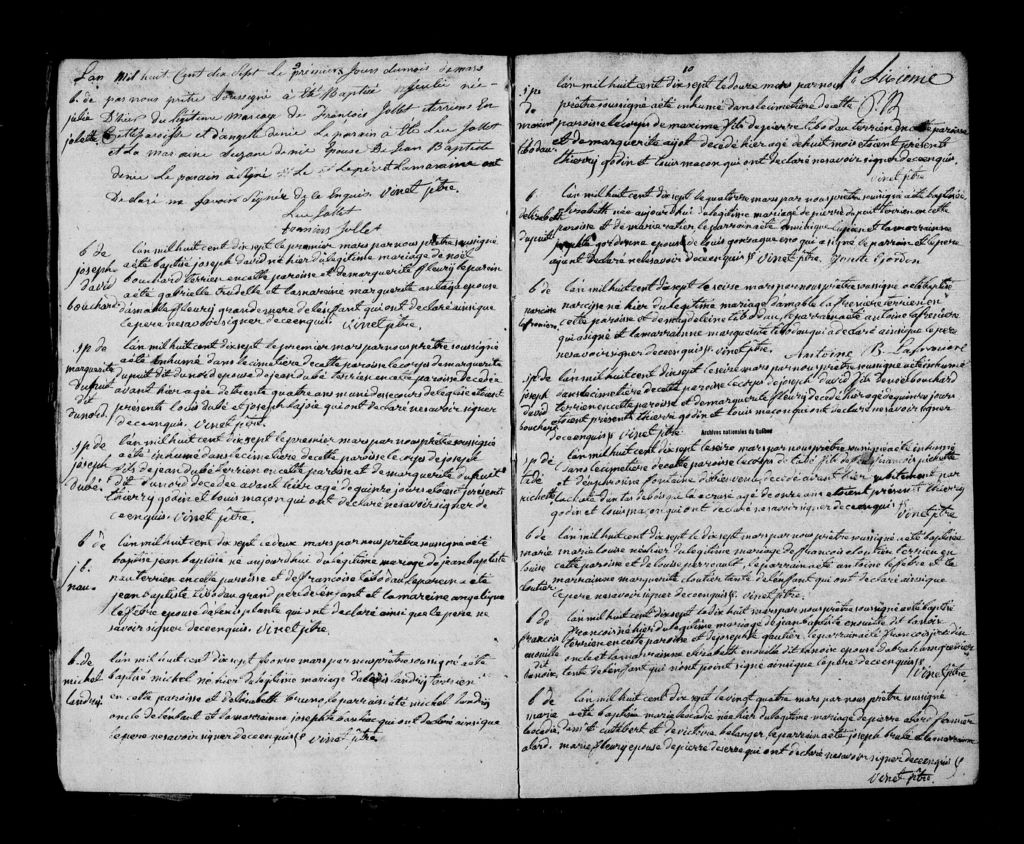 L'an Mil huit Cent dix Sept le premiers Jours du mois de mars
b. de par nous prêtre Soussigné a Eté Baptisé julie née
julie D'hier du légitime Mariage de François Jollet terriens En
jollette Cette paroisse et d'angelle denie Le parain à Eté Luc Jollet
et La maraine Suzane denie Epouse De Jean Baptiste
denie Le parain a signé et le père et la maraine ont
Declaré ne Savoir Signer de le Enquis. Vinet ptre.
Luc Jollet
francois Jollet
b de l'an mil huit cent dix sept le premier mars par nous prêtre soussigné
joseph a été baptisé joseph david né hier du légitime mariage de noël
david bouchard terrien en cette paroisse et de marguerite fleury le parein
bouchard a été gabrielle trudelle et la mareine marguerite epouse
damable fleury grande mere de l'enfant qui ont déclaré ainsi que
le pere ne savoir signer de ce enquis. Vinet ptre.
sp de l'an mil huit cent dix sept le premier mars par nous prêtre soussigné
marguerite a été inhumé dans le cimetiere de cette paroisse le corps de marguerite
dupuit dupuit dit dunord epouse de jean dubé terrien en cette paroisse decedée
dit avant hier agée de trente quatre ans munie des secours de l'eglise etoient
dunord. presents louis dubé et joseph lajoie qui ont déclaré ne savoir signer
de ce enquis. Vinet ptre.
sp de l'an mil huit cent dix sept le premier mars par nous prêtre soussigné
joseph a été inhumé dans le cimetiere de cette paroisse le corps de joseph
dubé fils de jean dubé terrien en cette paroisse et de marguerite dupuit
dit dunord decedée avant hier agé de quinze jours etoient presents
thierry godin et louis maçon qui ont déclaré ne savoir signer de
ce enquis. Vinet ptre.
b de l'an mil huit cent dix sept le deux mars par nous prêtre soussigné a été
j. b. baptisé jean baptiste né aujourd'hui du légitime mariage de jean baptiste
nau nau terrien en cette paroisse et de françoise tibodau le parein a été
jean baptiste tibodau grand pere de l'enfant et la mareine angelique
lefebre epouse de plante qui ont déclaré ainsi que le pere ne
savoir signer de ce enquis. Vinet ptre.
b. de l'an mil huit cent dix sept mars par nous prêtre soussigné a été
michel baptisé michel né hier du légitime mariage landry terrien
landry. en cette paroisse et de elisabeth bruno le parrain a été michel landry
oncle de l'enfant et la marrainne josephte qui ont déclaré ainsi que
le pere ne savoir signer de ce enquis Vinet ptre
10
sp l'an mil huit cent dix sept le douze mars par nous
de prêtre soussigné a été inhumé dans le cimetiere de cette
maxime paroisse le corps de maxime fils de pierre tibodau terrien en cette paroisse
tibodau et de marguerite ayot decedé hier agé de huit mois etoient presents
thierry godin et louis maçon qui ont déclaré ne savoir signer de ce enquis.
Vinet ptre
P. B
b l'an mil huit cent dix sept le quatorze mars par nous prêtre soussigné a été baptisée
delizabeth elisabeth née aujourd'hui du légitime mariage de pierre dupuit terrien en cette
dupuit paroisse et de marie ratier, le parrain a été et la marrainne
epouse de louis gonzague qui a signé le parrein et le pere
ayant déclaré ne savoir de ce enquis Vinet ptre.
b de l'an mil huit cent dix sept le seize mars par nous prêtre soussigné a été baptisé
narcise narcise né hier du légitime mariage damable lafreniere terrien en
lafreniere. cette paroisse et de magdeleine tibodau, le parrain a été antoine lafreniere
qui a signé et la marrainne marguerite tibodau qui a déclaré ainsi que le pere
ne savoir signer de ce enquis. Vinet ptre. Antoine B. Lafreniere
sp de l'an mil huit cent dix sept le seize mars par nous prêtre soussigné a été inhumé
joseph dans le cimetiere de cette paroisse le corps de joseph david fils de noel bouchard
david terrien en cette paroisse et de marguerite fleury decedé hier agé de quinze jours
bouchard etoient présents thierri godin et louis maçon qui ont déclaré ne savoir signer
de ce enquis Vinet ptre
Archives nationales du Québec
sp de l'an mil huit cent dix sept le seize mars par nous prêtre soussigné a été inhumé
dans le cimetiere de cette paroisse le corps de fils de françois
et de fontaine decedé avant hier subitement par
la chute d'un tas de bois qui l'a écrasé agé de onze ans etoient présents thierry
godin et louis maçon qui ont déclaré ne savoir signer de ce enquis
Vinet ptre
b de l'an mil huit cent dix sept le dix sept mars par nous prêtre soussigné, a été baptisée
marie marie louise née hier du légitime mariage de françois cloutier terrien en
louise cette paroisse et de louise perreault, le parrain a été antoine lefebre et la
cloutier marrainne marguerite cloutier tante de l'enfant qui ont déclaré ainsi que
le pere ne savoir signer de ce enquis. Vinet ptre.
b de l'an mil huit cent dix sept le dix huit mars par nous prêtre soussigné a été baptisé
francois françois né hier du légitime mariage de jean baptiste enouille dit lanoix
enouille terrien en cette paroisse et de josephte gautier, le parrain a été françois
dit oncle et la marrainne elizabeth enouille dit lanoix epouse
lanoix. tante de l'enfant qui n'ont point signé ainsi que le pere de ce enquis
Vinet ptre.
b de l'an mil huit cent dix sept le vingt quatre mars par nous prêtre soussigné
marie a été baptisée marie leocadie née hier du légitime mariage de pierre alard fermier
leocadie de st cuthbert et de victoire belanger, le parrain a été joseph brulé et la marrainne
alard. marie fleury epouse de pierre deserre qui ont déclaré ne savoir signer de ce enquis
Vinet ptre.